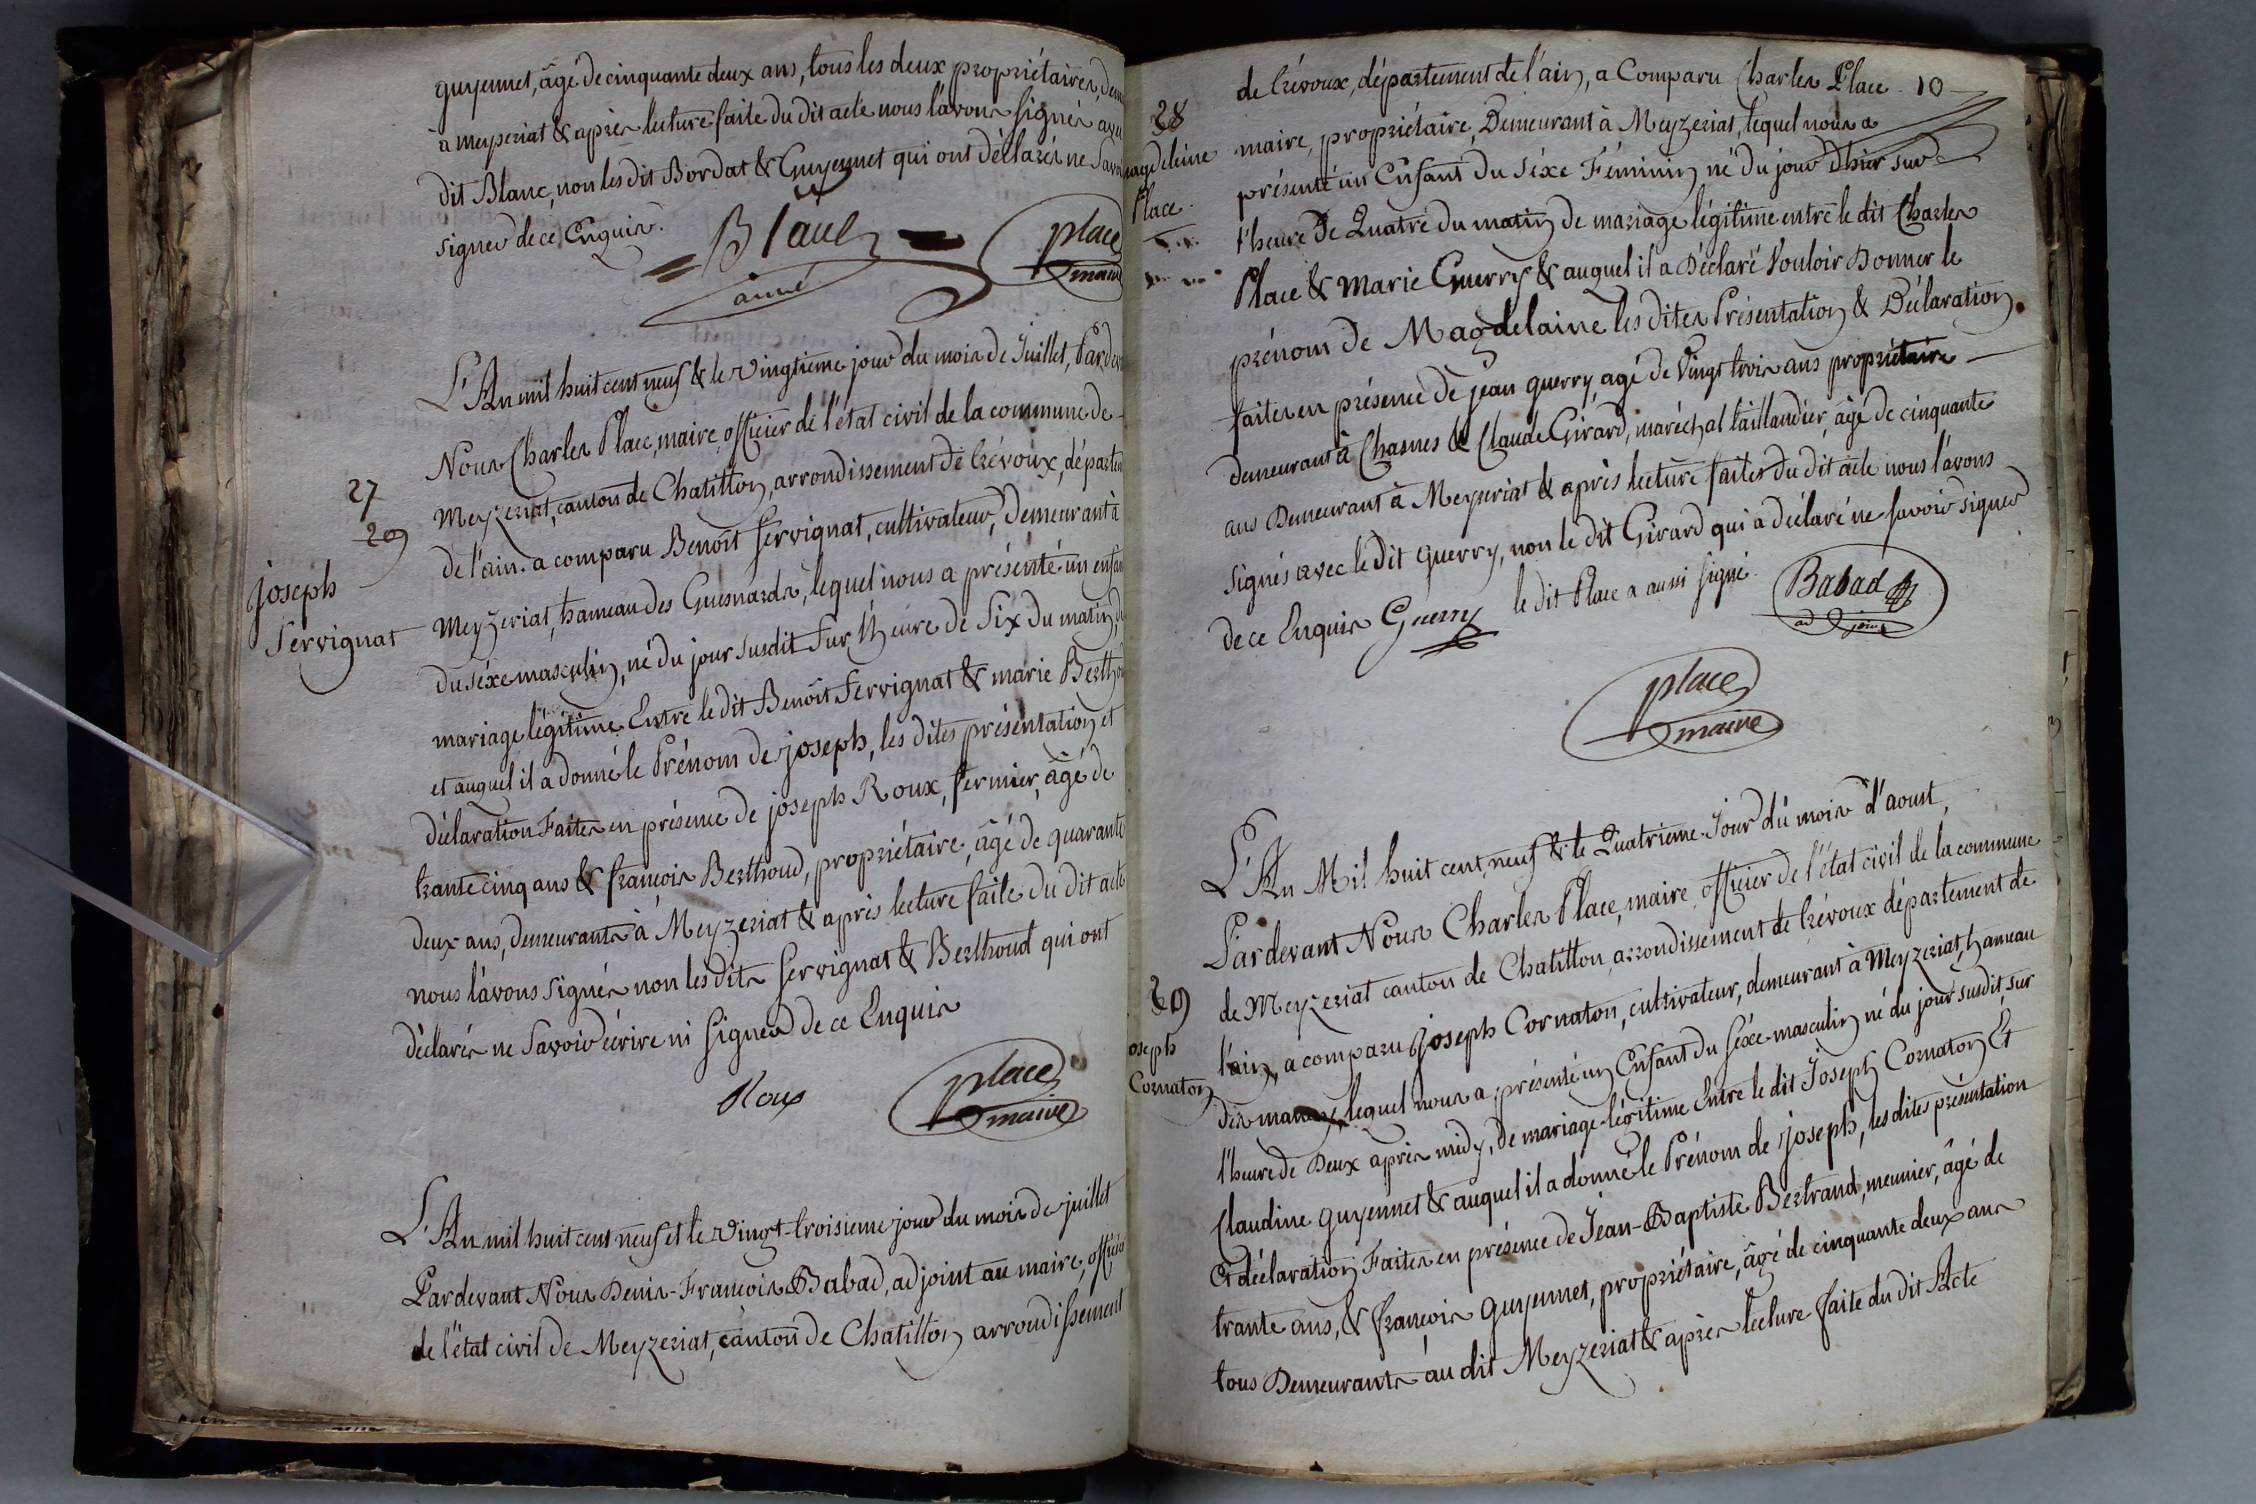 guyennet, âgé de cinquante deux ans, tous les deux propriétaires, dem
à meyseriat & après lecture faite du dit acte nous l'avons signés avec
dit Blanc, non les dit Bordat & Guyennet qui ont déclarés ne savoir
signer de ce Enquis.
Blanc
ainé
place
maire
L'An mil huit cent neuf & le vingtieme jour du mois de Juillet, Pardev
Nous Charles Place, maire, officier de l'état civil de la commune de
27
29
Joseph
Servignat
Meyzeriat, canton de Chatillon, arrondissement de trévoux, départem
de l'ain. a comparu Benoît Servignat, cultivateur, Demeurant à
Meyzeriat, hameau des Guesnards, lequel nous a présenté un enfan
du séxe masculin, né du jour susdit sur l'heure de Six du matin, de
mariage légitime Entre le dit Benoît Servignat & marie Berthou
et auquel il a donné le Prénom de joseph, les dites présentation et
déclaration Faites en présence de joseph Roux, fermier, âgé de
trante cinq ans & françois Berthoud, propriétaire, âgé de quarante
deux ans, demeurants à Meyzeriat & après lecture faite du dit acte
nous l'avons signés non les dits Servignat & Berthoud qui ont
déclarés ne Savoir écrire ni signer de ce Enquis
Roux
place
maire
L'An mil huit cent neuf et le vingt-troisieme jour du mois de juillet
Pardevant Nous Denis-François Babad, adjoint au maire, officier
de l'état civil de Meyzeriat, canton de Chatillon arrondissement
de trévoux, département de l'ain, a Comparu Charles Place 10
28
magdeleine
Place
maire, propriétaire, Demeurant à Meyzeriat, lequel nous a
présenté un Enfant du séxe Féminin né du jour D'hier sur
l'heure de Quatre du matin de mariage légitime entre le dit Charles
Place & Marie Guerry & auquel il a Déclaré Vouloir Donner le
prénom de Magdelaine les dites Présentation & Déclaration
faites en présence de jean guerry agé de Vingt trois ans propriétaire
demeurant à Chasnes & Claude Girard, maréchal taillandier, âgé de cinquante
ans Demeurant à Meyseriat & après lecture faites du dit acte nous l'avons
signés avec le Dit guerry, non le dit Girard qui a déclaré ne savoir signer
de ce Enquis Guerry le dit Place a aussi signé.
Babad
adjoint
place
maire
L'An Mil huit cent neuf & le Quatrieme Jour du mois d'aoust,
Pardevant Nous Charles Place, maire officier de l'état civil de la commune
de Meyzeriat canton de Chatillon, arrondissement de trévoux département de
29
oseph
Cornaton
l'ain, a comparu Joseph Cornaton, cultivateur, demeurant à Meyzeriat, hameau
des lequel nous a présenté un Enfant du séxe masculin né du jour susdit sur
l'heure de Deux après midy, de mariage légitime Entre le dit Joseph Cornaton Et
Claudine guyennet & auquel il a donné le Prénom de joseph, les dites présentation
Et déclaration Faites en présence de Jean-Baptiste Bertrand, meunier, âgé de
trante ans, & françois guyennet, propriétaire, âgé de cinquante deux ans
tous Demeurants au dit Meyzeriat & après lecture faite du dit Acte